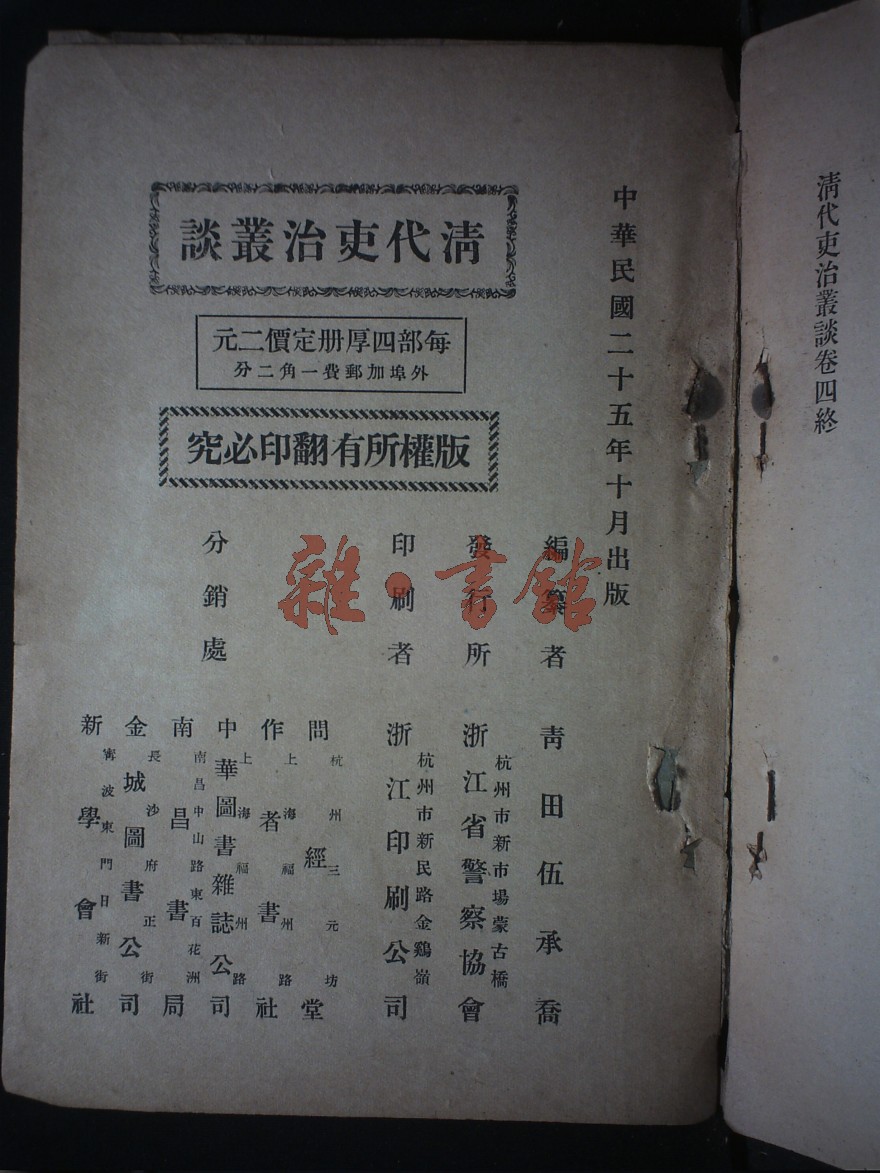 清代吏治叢談卷四終
中華民國二十五年十月出版
清代吏治叢談
每部四厚册定價二元
外埠加郵費一角二分
版權所有翻印必究
編纂者 青田伍承喬
發行所 杭州市新市場蒙古橋
浙江省警察協會
印刷者 杭州市新民路金鷄嶺
浙江印刷公司
分銷處
杭州三元坊
問經堂
上海福州路
作者書社
上海福州路
中華圖書雜誌公司
南昌中山路東百花洲
南昌書局
長沙府正街
金城圖書公司
寗波東門日新街
新學會社
雜·書館